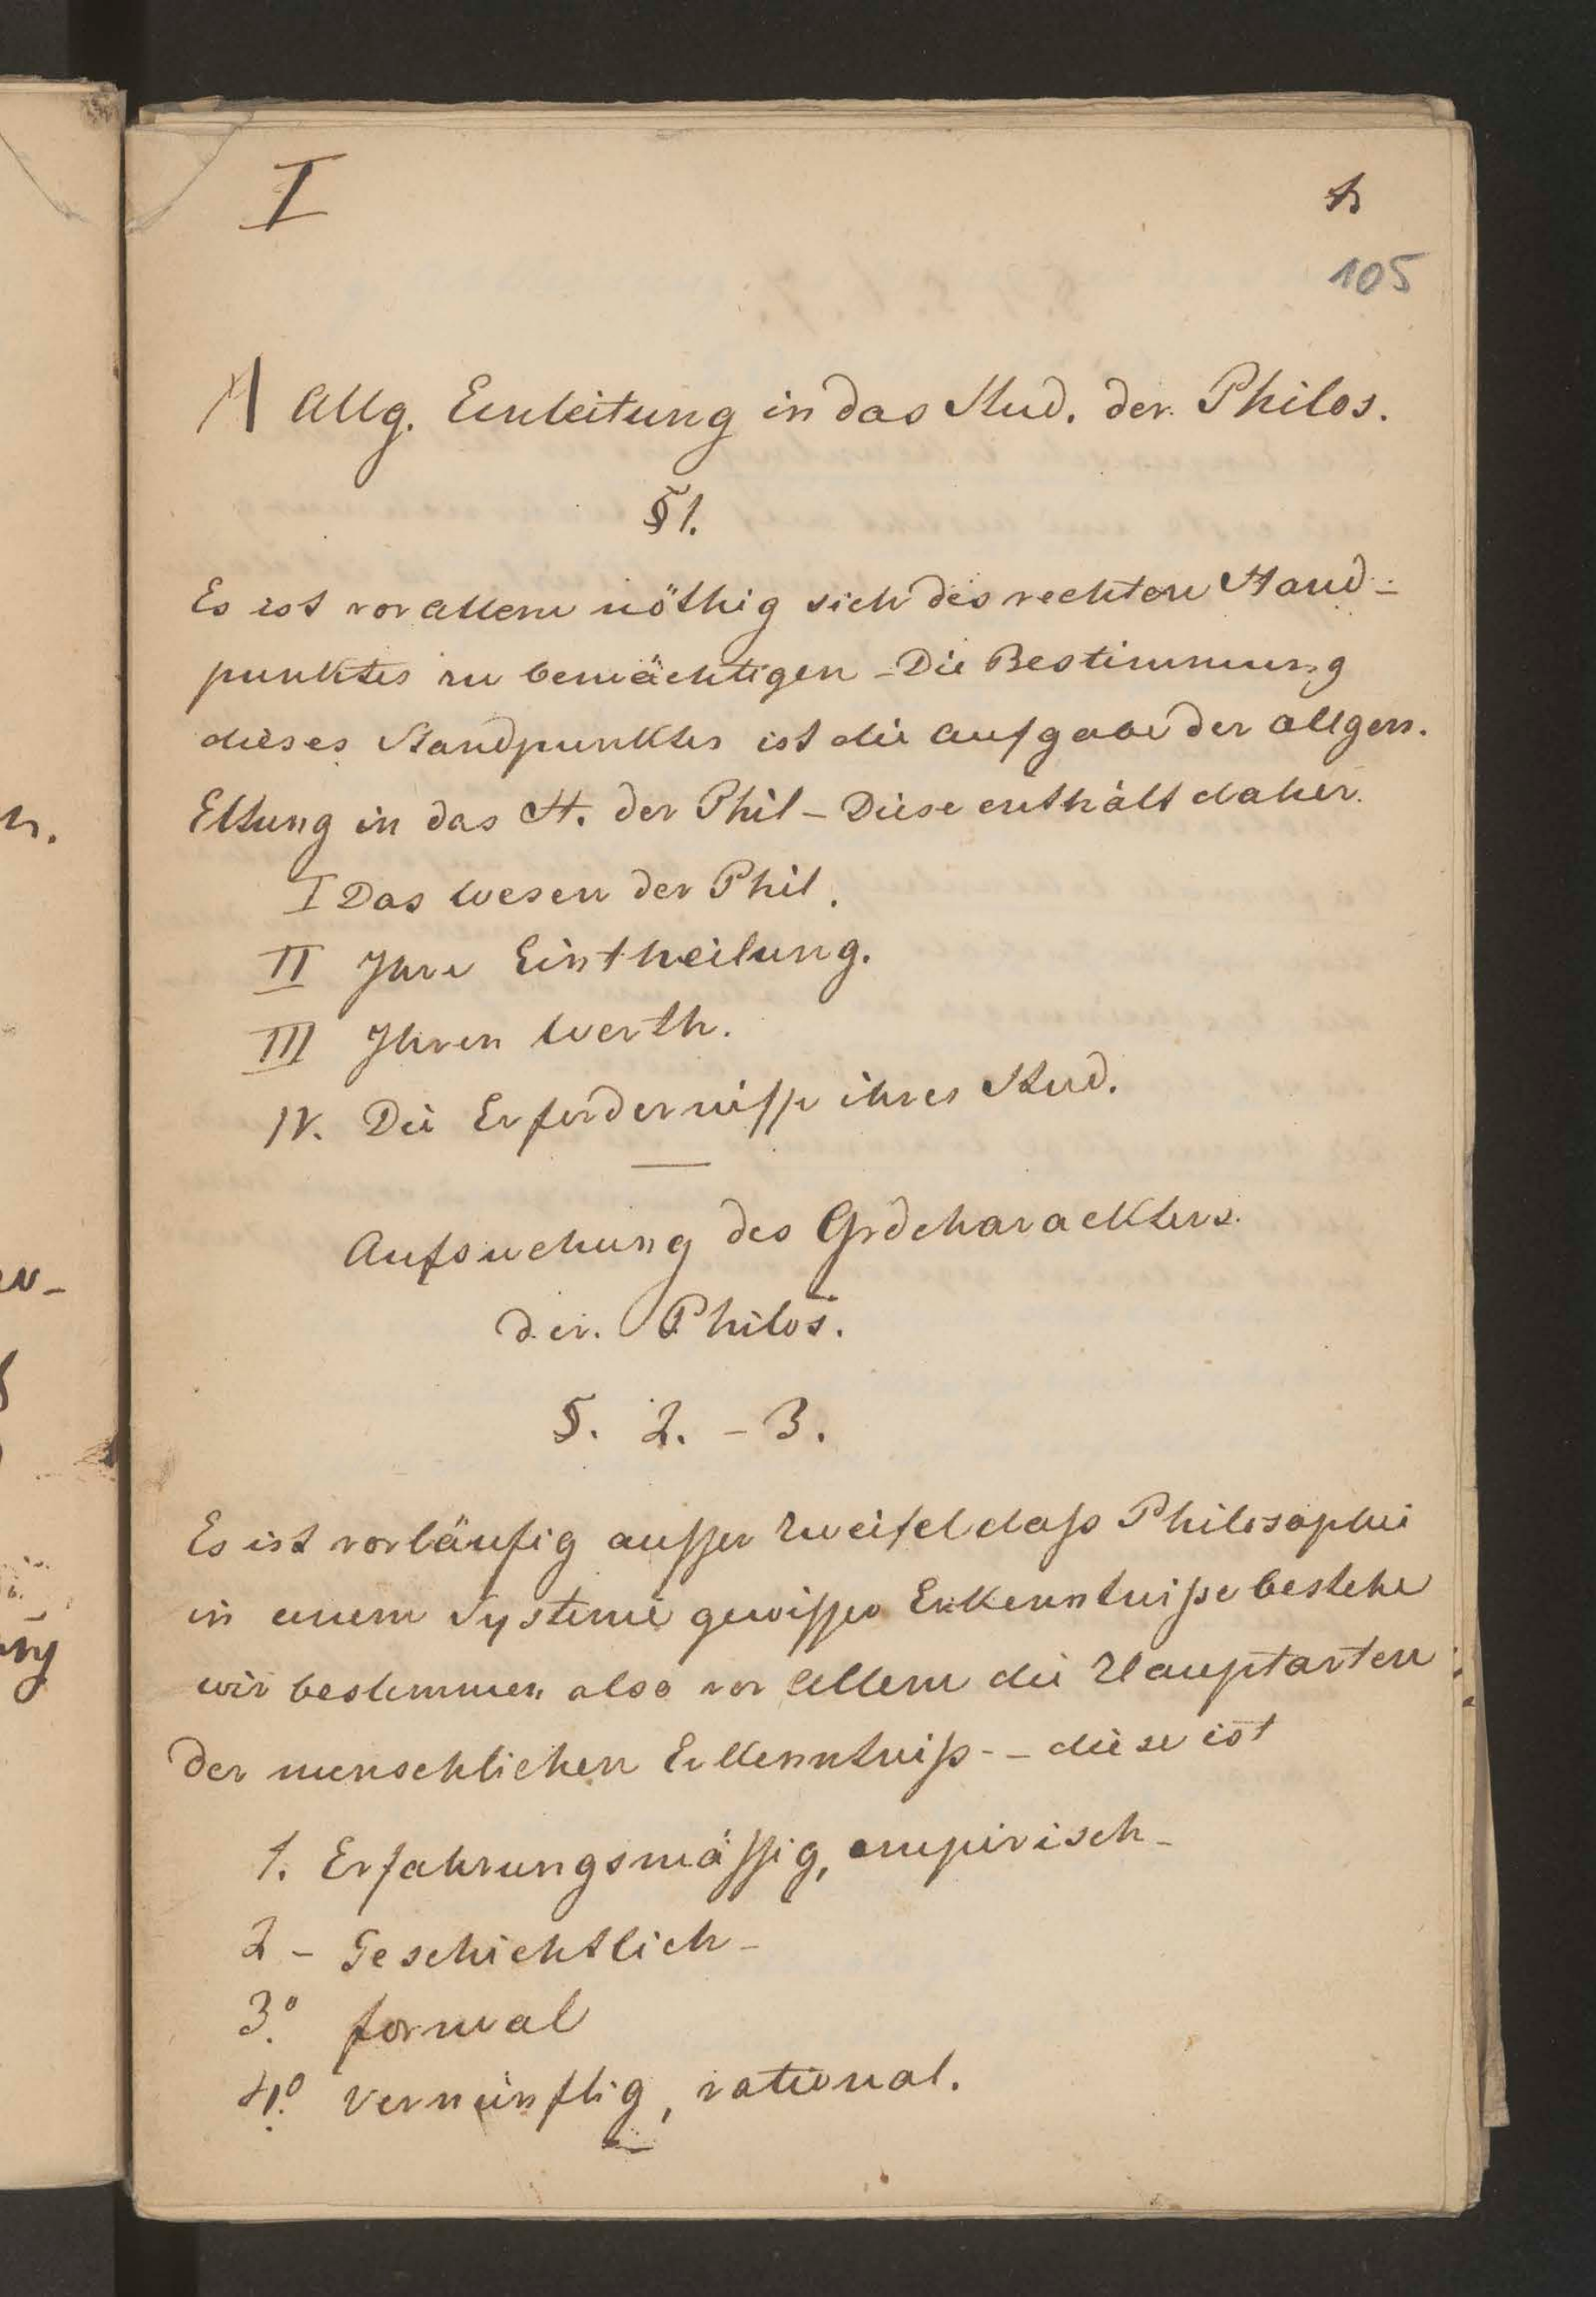 I
105
A Allg. Einleitung in das Stud. der Philos.
§ 1.
Es ist vor allem nöthig sich des rechten Stand-
punktes zu bemächtigen – Die Bestimmung
dieses Standpunktes ist die Aufgabe der allgem.
Eltung in das St. der Phil – Diese enthält daher.
I Das Wesen der Phil.
II Ihre Eintheilung.
III Ihren Werth.
IV. Die Erfordernisse ihres Stud.
Aufsuchung des Grdcharackters
der Philos.
§. 2. – 3.
Es ist vorläufig ausser Zweifel dass Philosophie
in einem Systeme gewisser Erkenntnisse bestehe
wir bestimmen also vor Allem die Hauptarten
der menschlichen Erkenntniß – diese ist
1. Erfahrungsmässig, empirisch –
2 – Geschichtlich –
3.° formal
4.° vernünftig, rational.